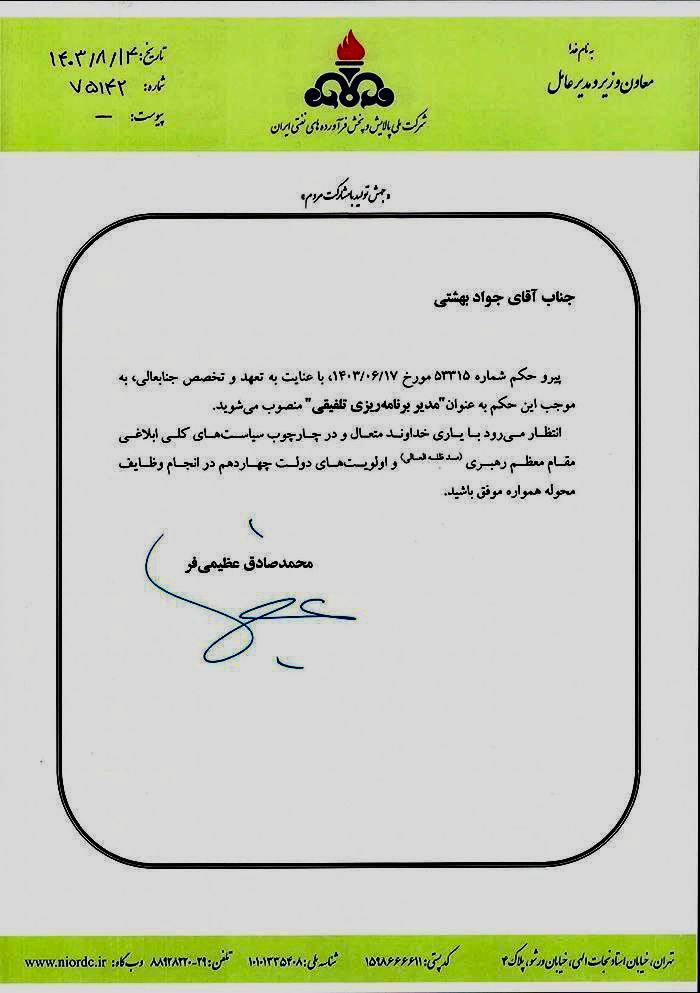 به نام خدا
معاون وزیر و مدیر عامل
شرکت ملی پالایش و پخش فرآورده های نفتی ایران
تاریخ: ۱۴۰۳/۸/۱۴
شماره: ۷۵۱۴۲
پیوست: —
«جهش تولید با مشارکت مردم»
جناب آقای جواد بهشتی
پیرو حکم شماره ۵۳۳۱۵ مورخ ۱۴۰۳/۰۶/۱۷، با عنایت به تعهد و تخصص جنابعالی، به
موجب این حکم به عنوان "مدیر برنامه‌ریزی تلفیقی" منصوب می‌شوید.
انتظار می‌رود با یاری خداوند متعال و در چارچوب سیاست‌های کلی ابلاغی
مقام معظم رهبری (مد ظله العالی) و اولویت‌های دولت چهاردهم در انجام وظایف
محوله همواره موفق باشید.
محمدصادق عظیمی‌فر
تهران، خیابان استاد نجات الهی، خیابان ورشو، پلاک ۴ کد پستی: ۱۵۹۸۶۶۶۶۱۱ شناسه ملی: ۱۰۱۰۱۳۳۵۴۰۸ تلفن: ۲۹-۸۸۹۲۸۳۲۰ وب گاه: www.niordc.ir